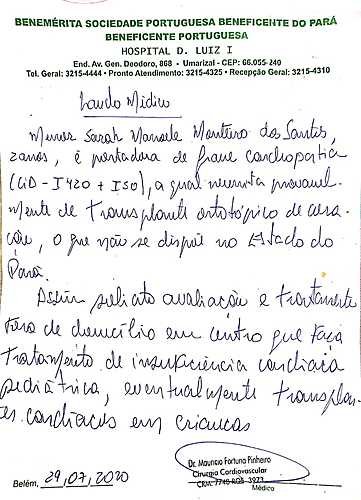 BENEMÉRITA SOCIEDADE PORTUGUESA BENEFICENTE DO PARÁ
BENEFICENTE PORTUGUESA
HOSPITAL D. LUIZ I
End. Av. Gen. Deodoro, 868 • Umarizal - CEP: 66.055-240
Tel. Geral: 3215-4444 • Pronto Atendimento: 3215-4325 • Recepção Geral: 3215-4310
Laudo Médico
Menor Sarah Manoele Monteiro dos Santos,
2 anos, é portadora de grave cardiopatia
(CID - I420 + I50), a qual necessita provavel
mente de transplante ortotópico de cora
ção, o que não se dispõe no Estado do
Pará.
Assim solicito avaliação e tratamento
fora de domicílio em centro que faça
tratamento de insuficiência cardíaca
pediátrica, eventualmente transplan-
tes cardíacos em crianças
Dr. Mauricio Fortuna Pinheiro
Cirurgia Cardiovascular
CRM: 7740 RQE: 3973
Médico
Belém, 29,07,2020